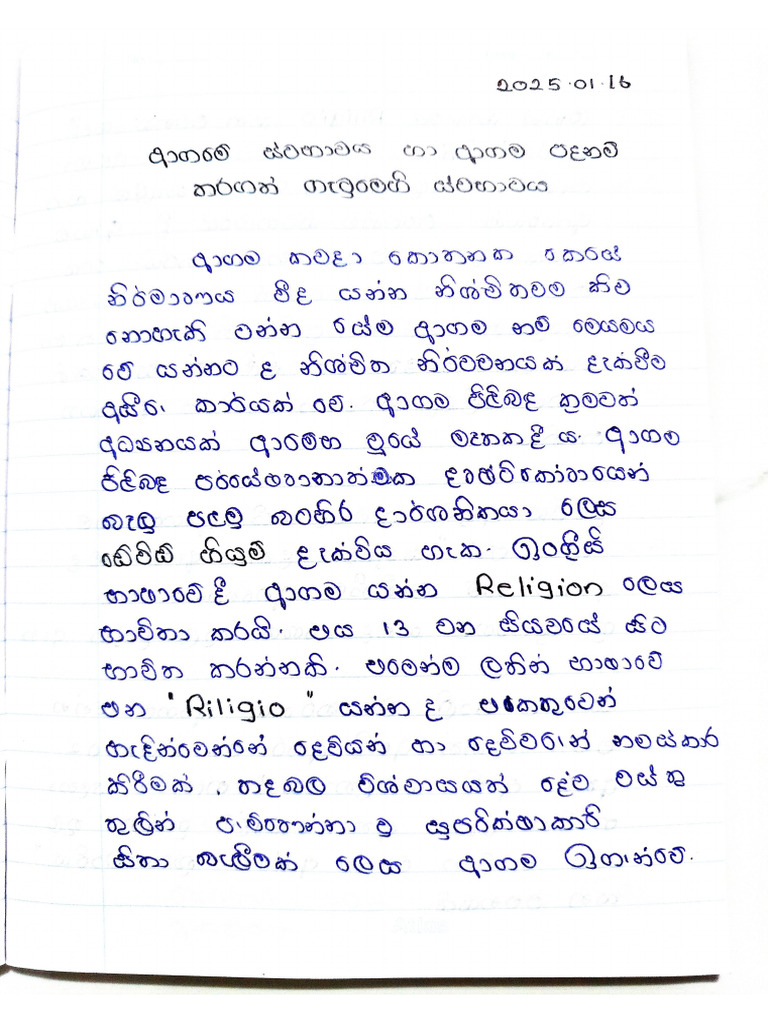 2025.01.16
ආගමේ ස්වභාවය හා ආගම පදනම්
කරගත් ගැටුමෙහි ස්වභාවය
ආගම කවදා කොතනක කෙසේ
නිර්මාණය වීද යන්න නිශ්චිතවම කිව
නොහැකි වන්න සේම ආගම නම් මෙයමය
වේ යන්නට ද නිශ්චිත නිර්වචනයක් දැක්වීම
අසීරු කාර්යක් වේ. ආගම පිළිබඳ ක්‍රමවත්
අධ්‍යනයක් ආරම්භ වූයේ මෑතකදී ය. ආගම
පිළිබඳ පර්යේෂණාත්මක දෘෂ්ටිකෝණයෙන්
බැලූ පළමු බටහිර දාර්ශනිකයා ලෙස
ඩේවිඩ් හියුම් දැක්විය හැක. ඉංග්‍රීසි
භාෂාවේ දී ආගම යන්න Religion ලෙස
භාවිතා කරයි. එය 13 වන සියවසේ සිට
භාවිත කරන්නකි. එමෙන්ම ලතින් භාෂාවේ
එන "Riligio" යන්න ද එකෙතුවෙන්
හැඳින්වෙන්නේ දෙවියන් හා දෙව්වරුන් නමස්කාර
කිරීමක්, තදබල විශ්වාසයත් දේව වස්තු
තුලින් පැමිණෙන්නා වූ සුපරික්ෂාකාරී
සිතා බැලීමක් ලෙස ආගම ඉගැන්වේ.